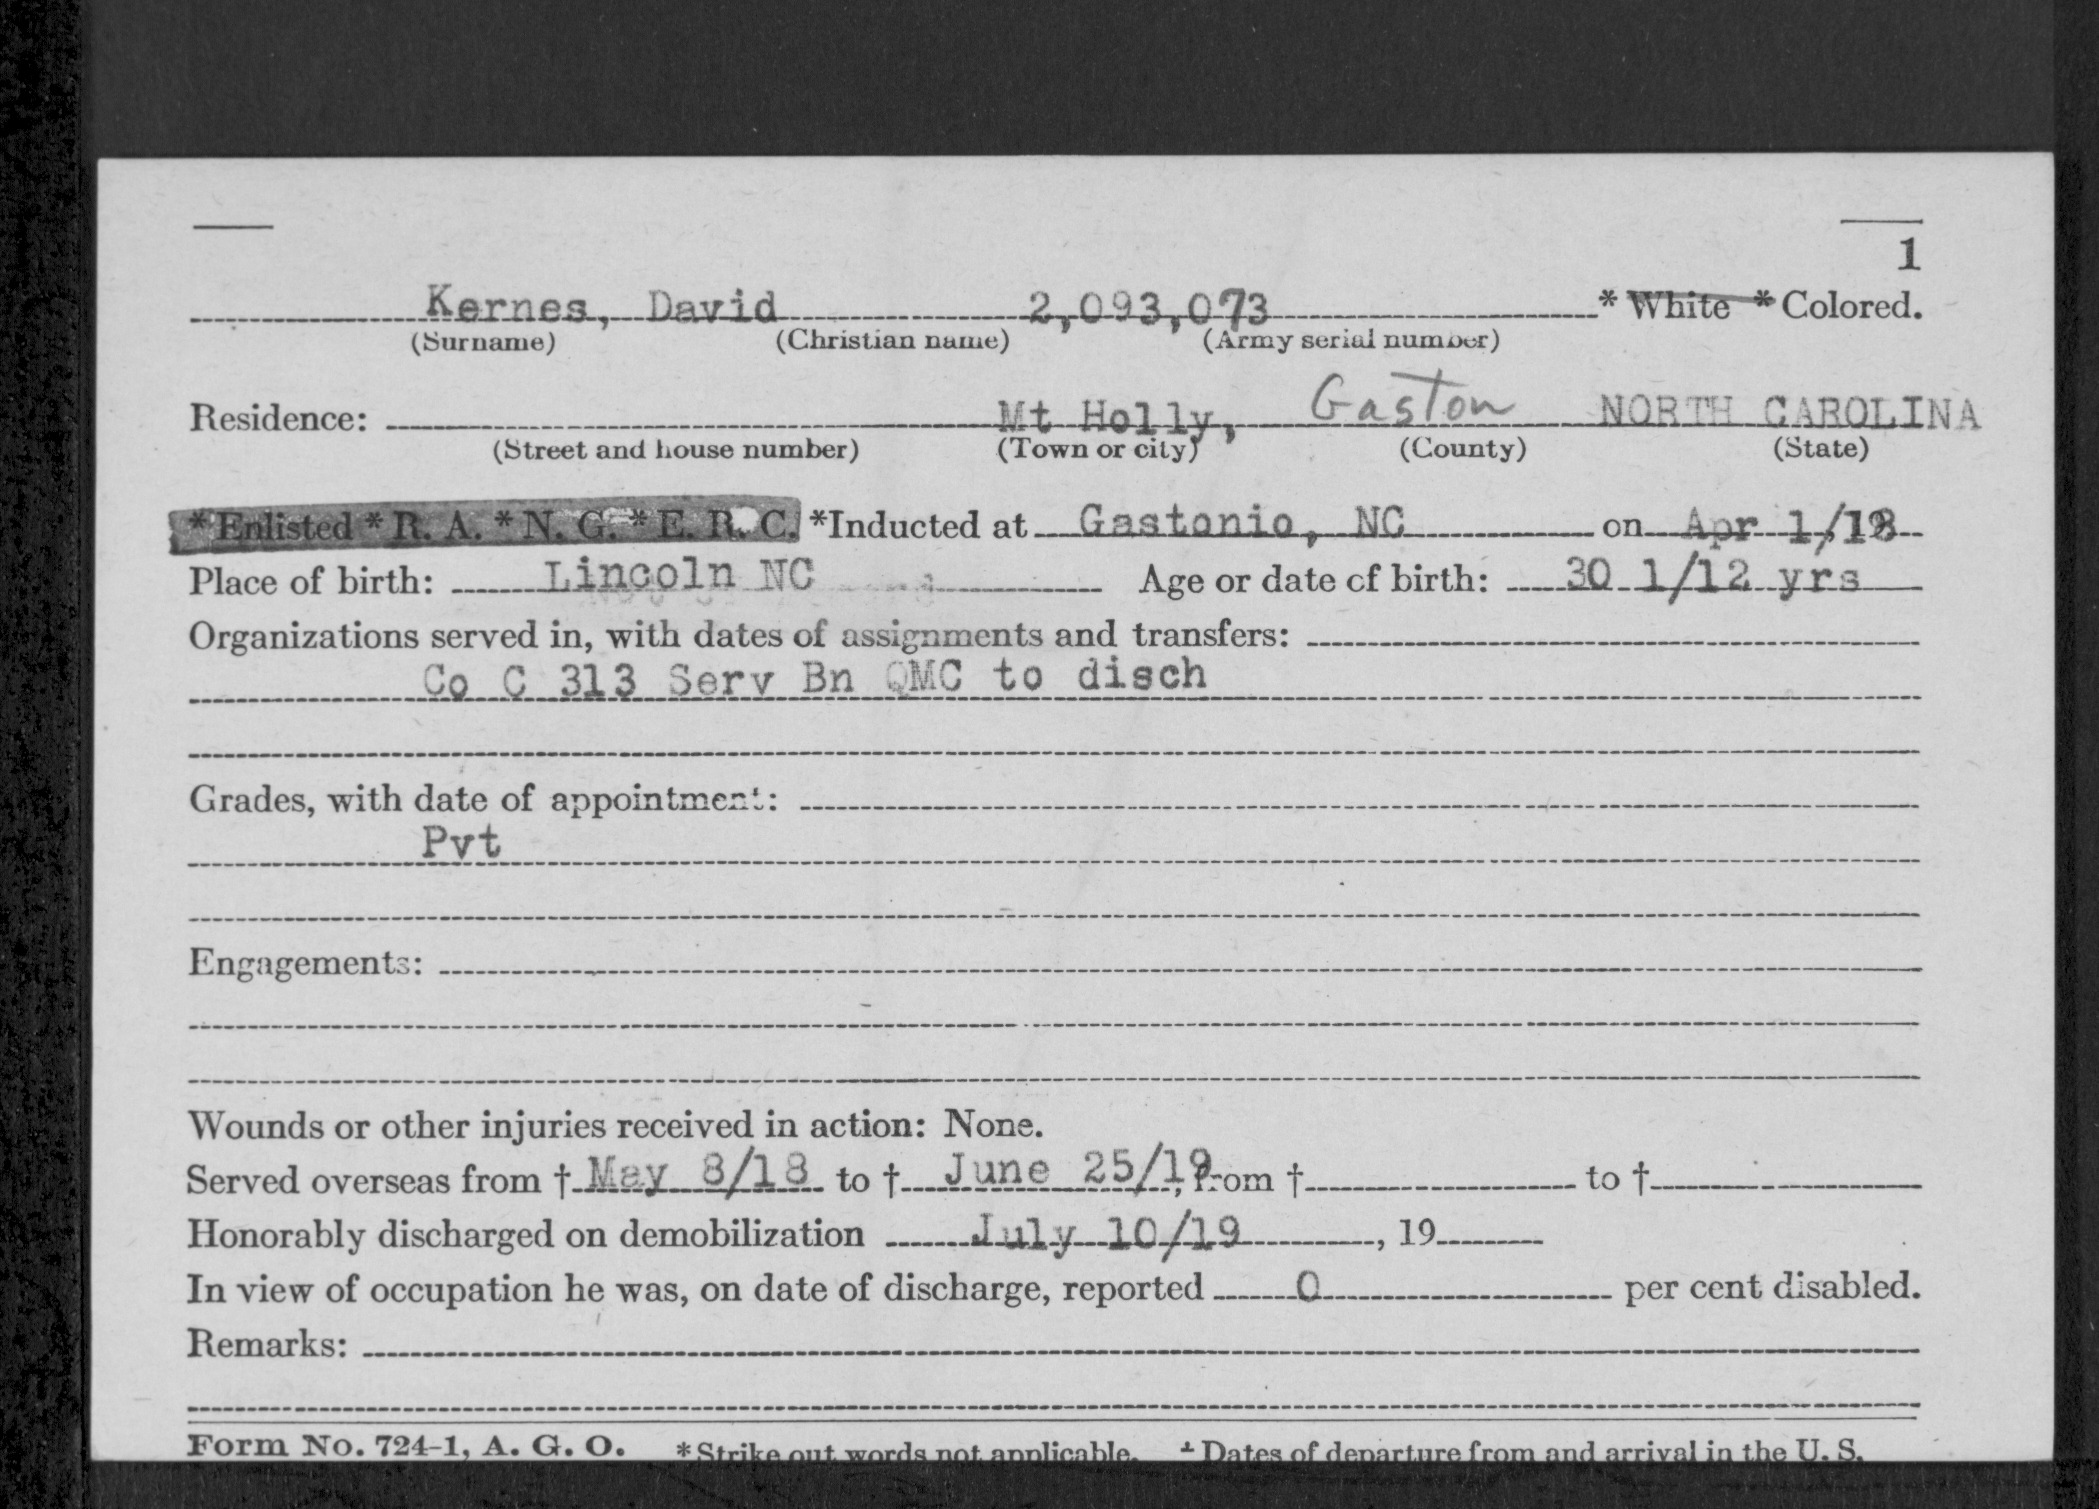 1
Kernes, David 2,093,073 * White * Colored.
(Surname) (Christian name) (Army serial number)
Residence: Mt Holly, Gaston NORTH CAROLINA
(Street and house number) (Town or city) (County) (State)
*Enlisted *R. A. *N. G. *E. R. C. *Inducted at Gastonio, NC on Apr 1/18
Place of birth: Lincoln NC Age or date of birth: 30 1/12 yrs
Organizations served in, with dates of assignments and transfers:
Co C 313 Serv Bn QMC to disch
Grades, with date of appointment:
Pvt
Engagements:
Wounds or other injuries received in action: None.
Served overseas from † May 8/18 to † June 25/19, from † to †
Honorably discharged on demobilization July 10/19, 19
In view of occupation he was, on date of discharge, reported 0 per cent disabled.
Remarks:
Form No. 724-1, A. G. O. *Strike out words not applicable. † Dates of departure from and arrival in the U. S.